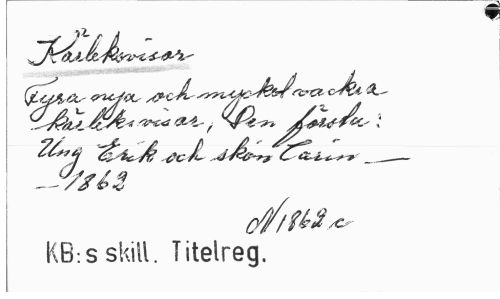 Kärleksvisor
Fyra nya och mycket vackra
kärleksvisor, Den första:
Ung Erik och skön Carin —
— 1862
N 1862 c
KB:s skill. Titelreg.